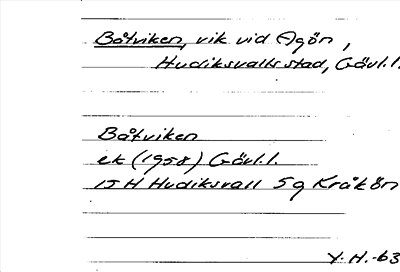 Båtviken, vik vid Agön,
Hudiksvalls stad, Gävl.l.
Båtviken
ek (1958) Gävl.l.
15H Hudiksvall 5g Kråkön
Y.H.-63